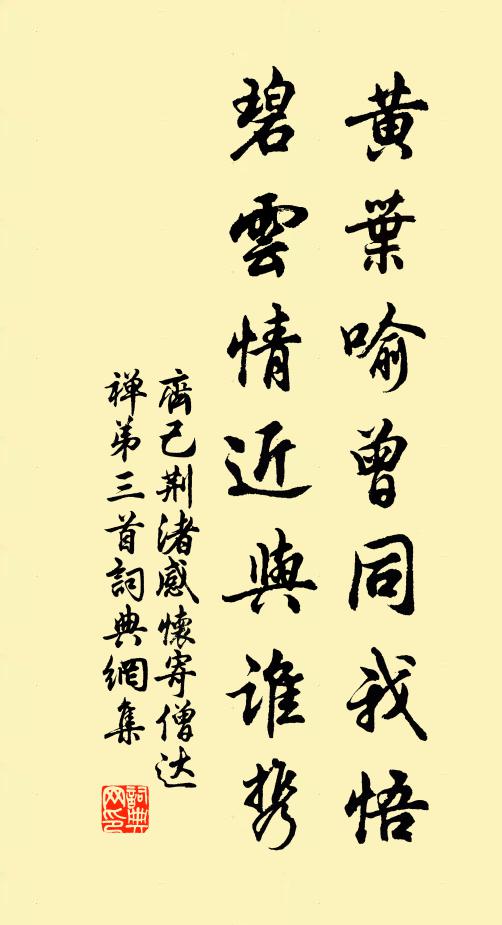 黄葉喻曾同我悟
碧雲情近與誰携
齊己荆渚感懷寄僧达
禅弟三首詞典網集
詞典网印